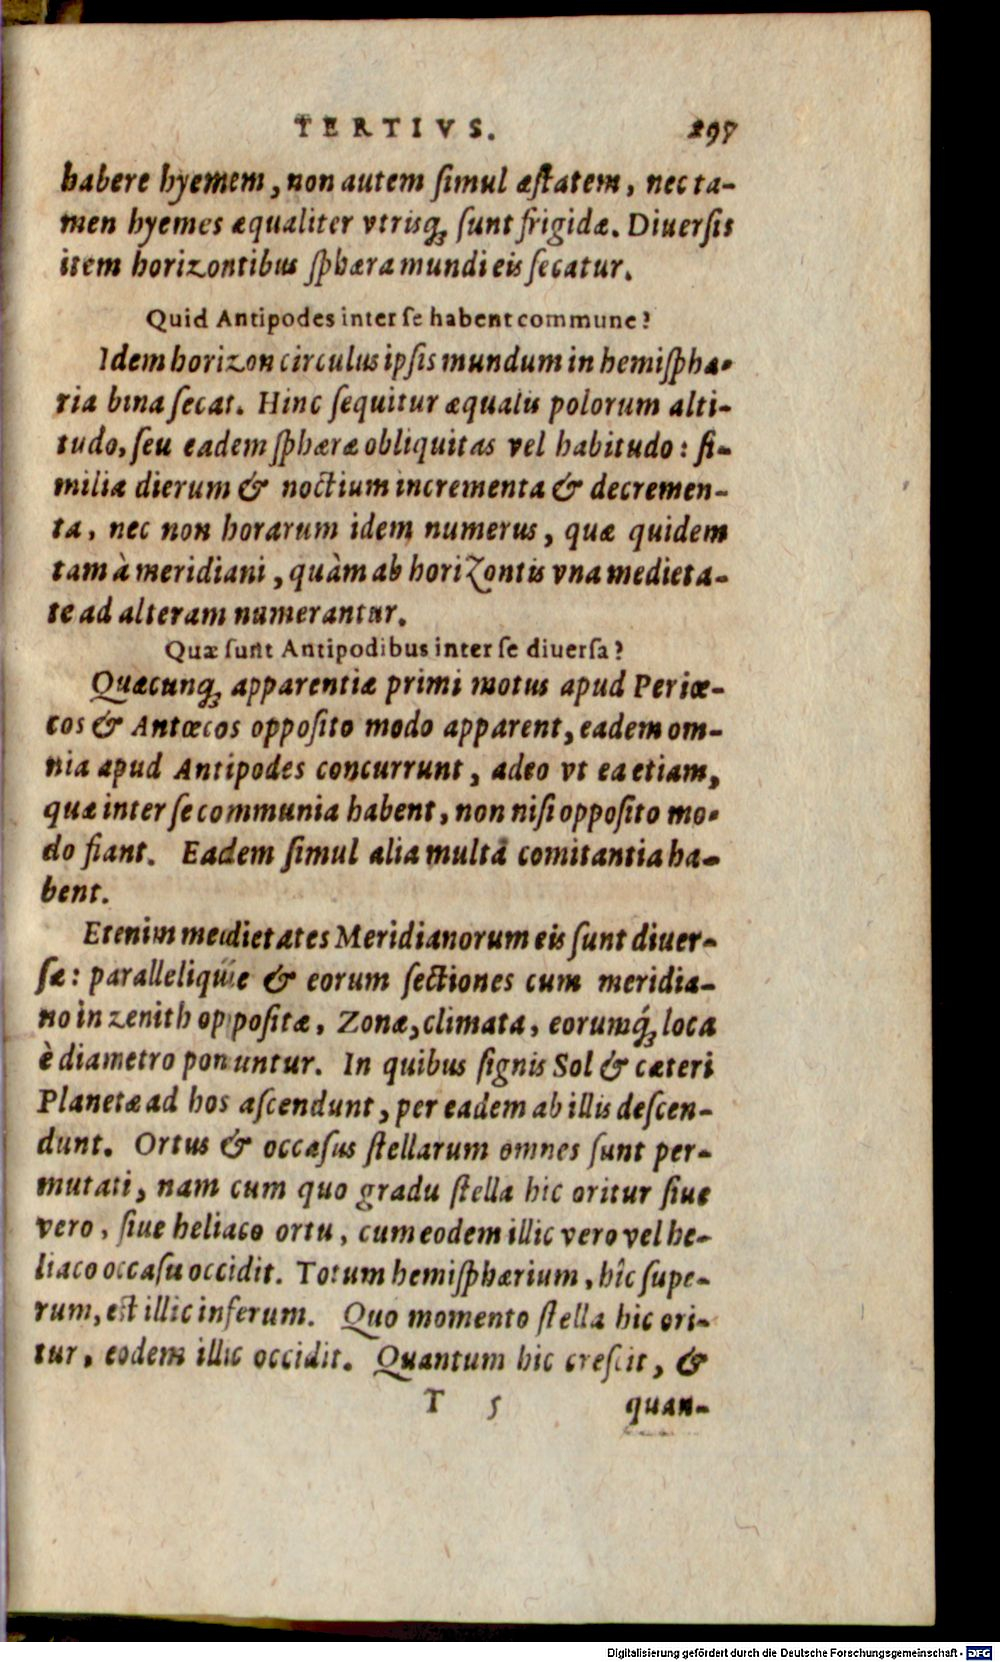 TERTIVS. 297
habere hyemem, non autem ſimul æſtatem, nec ta-
men hyemes æqualiter vtrisq; ſunt frigidæ. Diuerſis
item horizontibus ſphæra mundi eis ſecatur.
Quid Antipodes inter ſe habent commune?
Idem horizon circulus ipſis mundum in hemiſphæ-
ria bina ſecat. Hinc ſequitur æqualis polorum alti-
tudo, ſeu eadem ſphæræ obliquitas vel habitudo: ſi-
milia dierum & noctium incrementa & decremen-
ta, nec non horarum idem numerus, quæ quidem
tam à meridiani, quàm ab horizontis vna medieta-
te ad alteram numerantur.
Quæ ſunt Antipodibus inter ſe diuerſa?
Quæcunq; apparentiæ primi motus apud Periœ-
cos & Antœcos oppoſito modo apparent, eadem om-
nia apud Antipodes concurrunt, adeo vt ea etiam,
quæ inter ſe communia habent, non niſi oppoſito mo-
do fiant. Eadem ſimul alia multa comitantia ha-
bent.
Etenim medietates Meridianorum eis ſunt diuer-
ſæ: paralleliqúe & eorum ſectiones cum meridia-
no in zenith oppoſitæ, Zonæ, climata, eorumq́; loca
è diametro ponuntur. In quibus ſignis Sol & cæteri
Planetæ ad hos aſcendunt, per eadem ab illis deſcen-
dunt. Ortus & occaſus ſtellarum omnes ſunt per-
mutati, nam cum quo gradu ſtella hic oritur ſiue
vero, ſiue heliaco ortu, cum eodem illic vero vel he-
liaco occaſu occidit. Totum hemiſphærium, hîc ſupe-
rum, eſt illic inferum. Quo momento ſtella hic ori-
tur, eodem illic occidit. Quantum hic creſcit, &
T 5 quan-
Digitalisierung gefördert durch die Deutsche Forschungsgemeinschaft - DFG